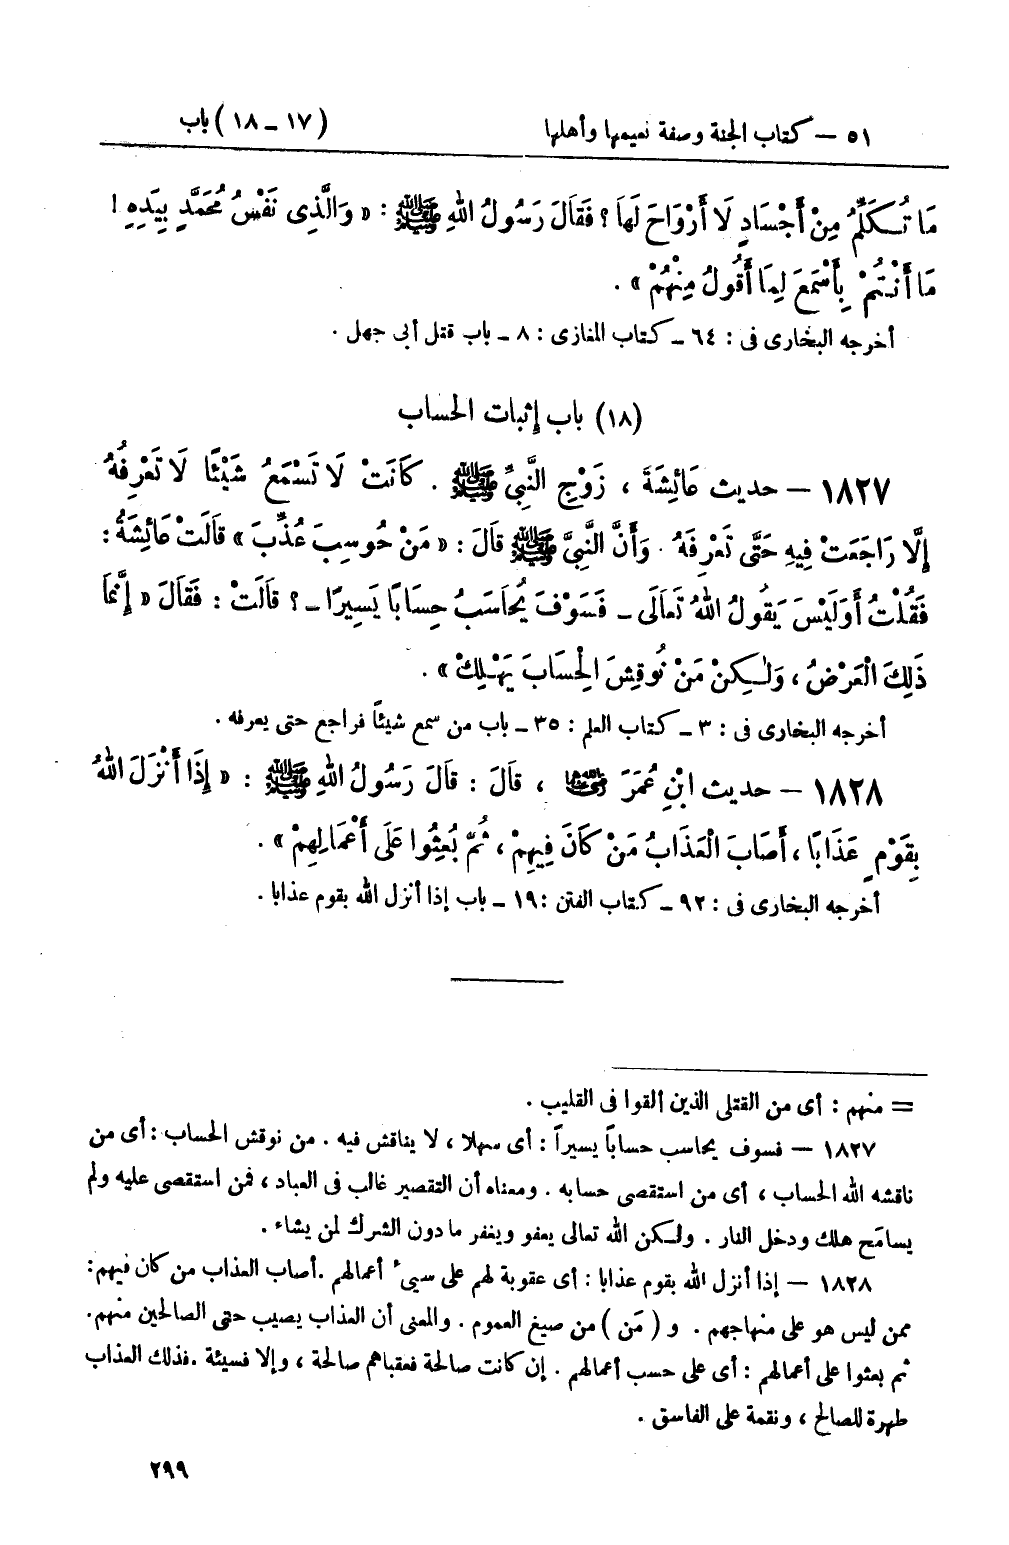 ٥١ – كتاب الجنة وصفة نعيمها وأهلها (١٧ – ١٨) باب
مَا تُكَلِّمُ مِنْ أَجْسَادٍ لَا أَرْوَاحَ لَهَا ؟ فَقَالَ رَسُولُ اللهِ ﷺ : « وَالَّذِى نَفْسُ مُحَمَّدٍ بِيَدِهِ !
مَا أَنْتُمْ بِأَسْمَعَ لِمَا أَقُولُ مِنْهُمْ » .
أخرجه البخارى فى : ٦٤ – كتاب المغازى : ٨ – باب قتل أبى جهل .
(١٨) باب إثبات الحساب
١٨٢٧ – حديث عَائِشَةَ ، زَوْجِ النَّبِىِّ ﷺ . كَانَتْ لَا تَسْمَعُ شَيْئًا لَا تَعْرِفُهُ
إِلَّا رَاجَعَتْ فِيهِ حَتَّى تَعْرِفَهُ . وَأَنَّ النَّبِىَّ ﷺ قَالَ : « مَنْ حُوسِبَ عُذِّبَ » قَالَتْ عَائِشَةُ :
فَقُلْتُ أَوَلَيْسَ يَقُولُ اللهُ تَعَالَى – فَسَوْفَ يُحَاسَبُ حِسَابًا يَسِيرًا – ؟ قَالَتْ : فَقَالَ « إِنَّمَا
ذَلِكَ الْعَرْضُ ، وَلٰكِنْ مَنْ نُوقِشَ الْحِسَابَ يَهْلِكْ » .
أخرجه البخارى فى : ٣ – كتاب العلم : ٣٥ – باب من سمع شيئاً فراجع حتى يعرفه .
١٨٢٨ – حديث ابْنِ عُمَرَ رضي الله عنهما ، قَالَ : قَالَ رَسُولُ اللهِ ﷺ : « إِذَا أَنْزَلَ اللهُ
بِقَوْمٍ عَذَابًا ، أَصَابَ الْعَذَابُ مَنْ كَانَ فِيهِمْ ، ثُمَّ بُعِثُوا عَلَى أَعْمَالِهِمْ » .
أخرجه البخارى فى : ٩٢ – كتاب الفتن : ١٩ – باب إذا أنزل الله بقوم عذابا .
= منهم : أى من القتلى الذين ألقوا فى القليب .
١٨٢٧ – فسوف يحاسب حساباً يسيراً : أى سهلا ، لا يناقش فيه . من نوقش الحساب : أى من
ناقشه الله الحساب ، أى من استقصى حسابه . ومعناه أن التقصير غالب فى العباد ، فمن استقصى عليه ولم
يسامح هلك ودخل النار . ولكن الله تعالى يعفو ويغفر ما دون الشرك لمن يشاء .
١٨٢٨ – إذا أنزل الله بقوم عذابا : أى عقوبة لهم على سيئ أعمالهم . أصاب العذاب من كان فيهم :
ممن ليس هو على منهاجهم . و ( مَن ) من صيغ العموم . والمعنى أن العذاب يصيب حتى الصالحين منهم .
ثم بعثوا على أعمالهم : أى على حسب أعمالهم . إن كانت صالحة فعقباهم صالحة ، وإلا فسيئة . فذلك العذاب
طهرة للصالح ، ونقمة على الفاسق .
٢٩٩